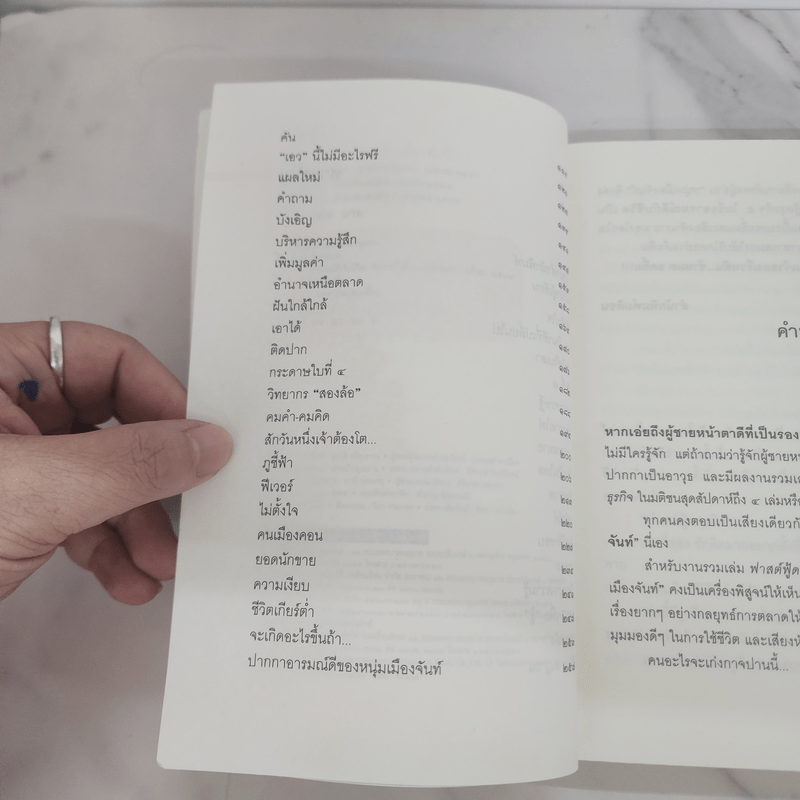 คัน
“เอว” นี้ไม่มีอะไรฟรี
แผลใหม่
คำถาม
บังเอิญ
บริหารความรู้สึก
เพิ่มมูลค่า
อำนาจเหนือตลาด
ฝันใกล้ใกล้
เอาได้
ติดปาก
กระดาษใบที่ ๔
วิทยากร “สองล้อ”
คมคำ-คมคิด
สักวันหนึ่งเจ้าต้องโต...
ภูชี้ฟ้า
ฟีเวอร์
ไม่ตั้งใจ
คนเมืองคอน
ยอดนักขาย
ความเงียบ
ชีวิตเกียร์ต่ำ
จะเกิดอะไรขึ้นถ้า...
ปากกาอารมณ์ดีของหนุ่มเมืองจันท์
หากเอ่ยถึงผู้ชายหน้าตาดีที่เป็นรอง
ไม่มีใครรู้จัก แต่ถ้าถามว่ารู้จักผู้ชาย
ปากกาเป็นอาวุธ และมีผลงานรวม
ธุรกิจ ในมติชนสุดสัปดาห์ถึง ๔ เล่ม
ทุกคนคงตอบเป็นเสียงเดียว
จันท์” นี่เอง
สำหรับงานรวมเล่ม ฟาสต์ฟู้ด
เมืองจันท์” คงเป็นเครื่องพิสูจน์ให้เห็น
เรื่องยากๆ อย่างกลยุทธ์การตลาดให้
มุมมองดีๆ ในการใช้ชีวิต และเสียง
คนอะไรจะเก่งกาจปานนี้...